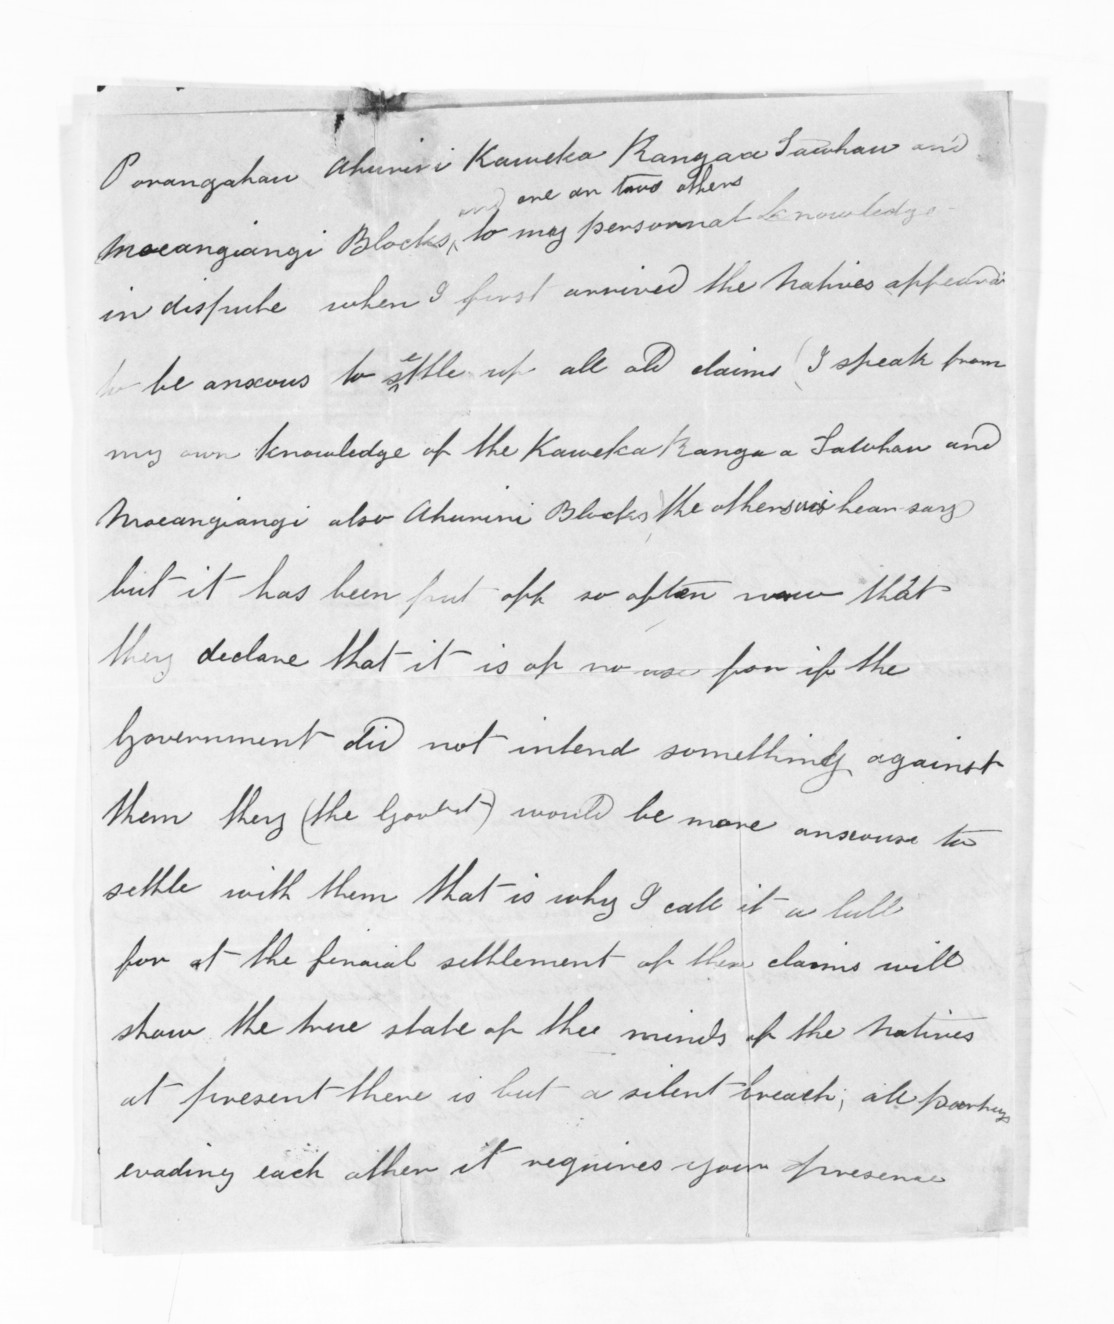 Porangahau Ahuriri Kaweka Rangaa Tawhau and
and one an two others
Moeangiangi Blocks, to my personnat knowledge
in dispute when I first arrived the Natives appeard
to be anxous to settle up all old claims (I speak from
my own knowledge of the Kaweka Ranga a Tawhau and
Moeangiangi also Ahuriri Blocks) the others vis hear say
but it has been put off so often now that
they declare that it is of no use for if the
Government did not intend something against
them they (the Govert) would be more anxouse to
settle with them that is why I call it a lull
for at the finaial settlement of these claims will
show the true state of thee minds of the Natives
at present there is but a silent breach; all partys
evading each other it requires your presense